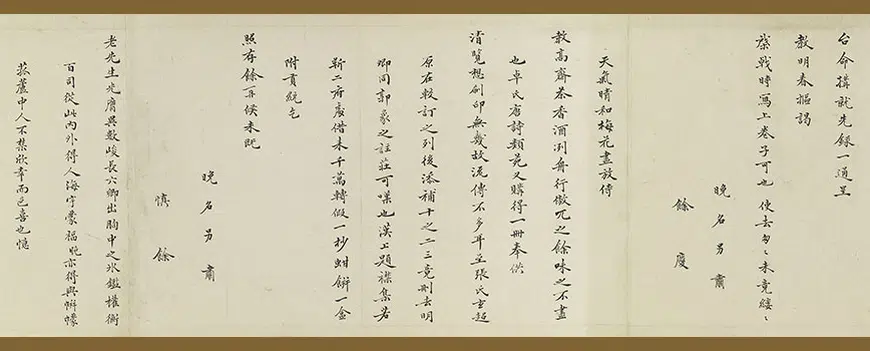 台命搆就先録一通呈
教明春摳謁
棨戟時寫上卷子可也使去匆〻未竟縷〻
晚名另肅
餘慶
天氣晴和梅花盡放傳
教高齋茶香酒冽舟行傲兀之餘味之不盡
也卓氏唐詩類苑又購得一冊奉供
清覽想刻印無幾故流傳不多耳至張氏玄超
原在較訂之列後添補十之二三竟刪去明
卿同郭象之註莊可嘆也漢上題襟集若
靳二府處借未千萬轉假一抄蚶餅一盒
附貢統乞
照存餘再候未既
晚名另肅
慎餘
老先生先膺異數峻長六卿出胸中之氷鑑權衡
百司從此內外得人海宇蒙福貺亦得與幈幪
菰蘆中人不禁欣幸而色喜也憶